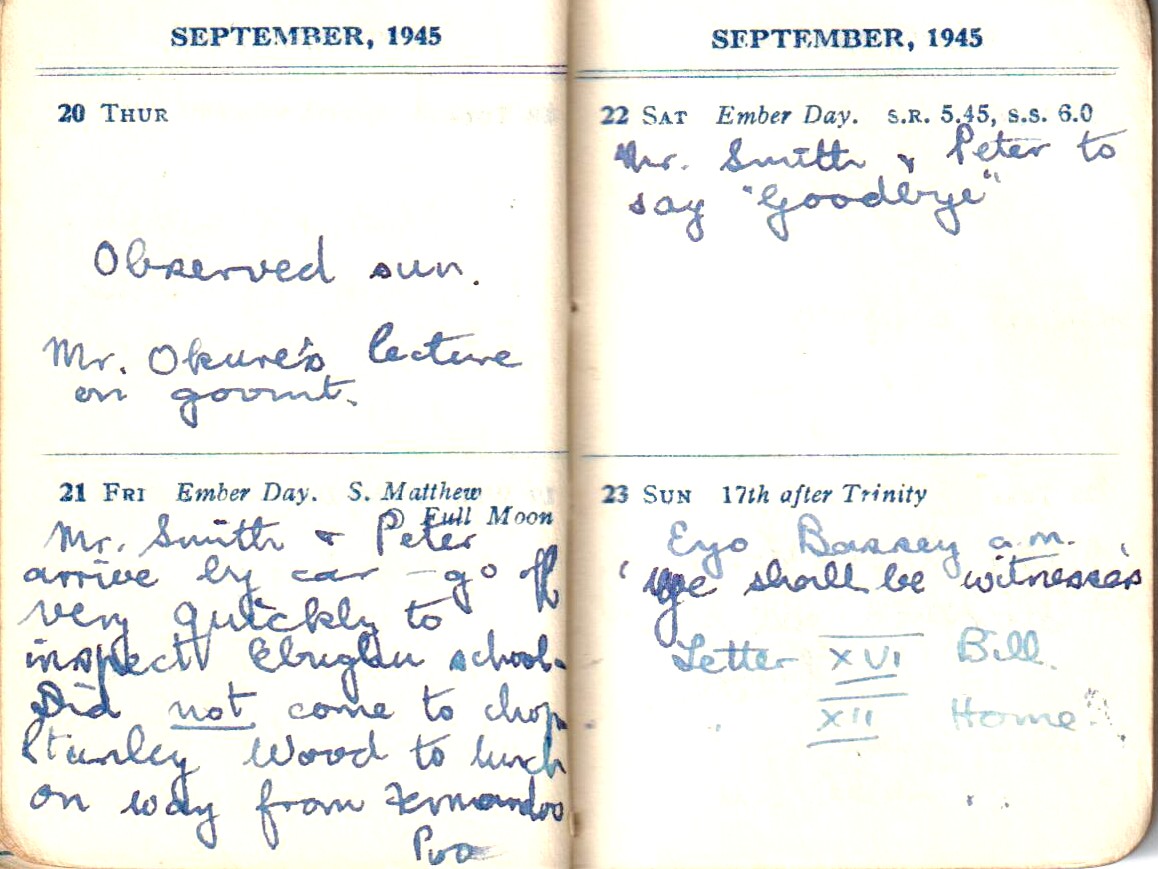 SEPTEMBER, 1945
20 THUR
Observed sun.
Mr. Okure's lecture
on govmt.
21 FRI Ember Day. S. Matthew
Full Moon
Mr. Smith & Peter
arrive by car – go off
very quickly to
inspect school.
Did not come to chop
Stanley Wood to lunch
on way from Fernandoo
Poo
SEPTEMBER, 1945
22 SAT Ember Day. S.R. 5.45, S.S. 6.0
Mr. Smith & Peter to
say "Goodbye"
23 SUN 17th after Trinity
Eyo Bassey a.m.
'Ye shall be witnesses'
Letter XVI Bill.
" XII Home.